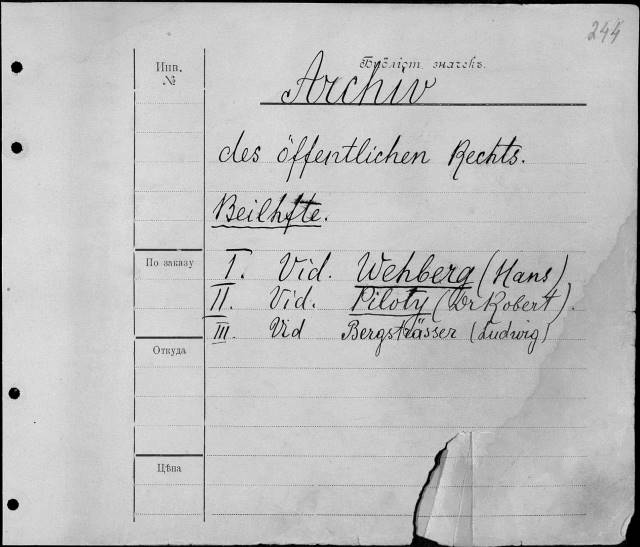 244
Инв.
№
Бубліст. значекъ.
Archiv
des öffentlichen Rechts.
Beilhfte.
По заказу
I. Vid. Wehberg (Hans)
II. Vid. Piloty (Dr Robert).
III. Vid Bergsträsser (Ludwig)
Откуда
Цѣна